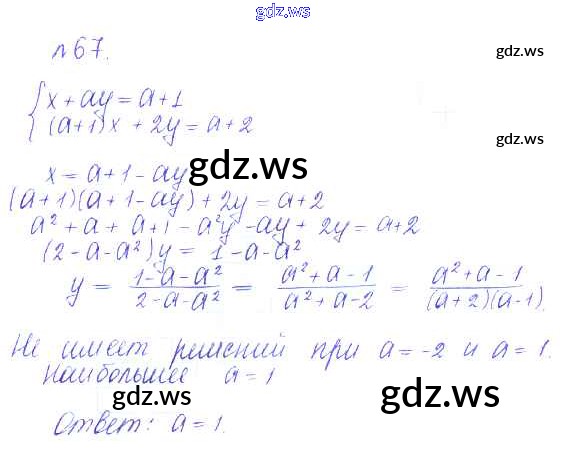 gdz.ws
№67.
gdz.ws
{ x + ay = a + 1
(a+1)x + 2y = a + 2
gdz.ws
x = a + 1 - ay
gdz.ws
(a+1)(a+1-ay) + 2y = a + 2
a² + a + a + 1 - a²y - ay + 2y = a + 2
(2 - a - a²)y = 1 - a - a²
y = (1 - a - a²)/(2 - a - a²) = (a² + a - 1)/(a² + a - 2) = (a² + a - 1)/((a+2)(a-1)).
Не имеет решений при a = -2 и a = 1.
Наибольшее a = 1
gdz.ws
gdz.ws
Ответ: a = 1.
gdz.ws